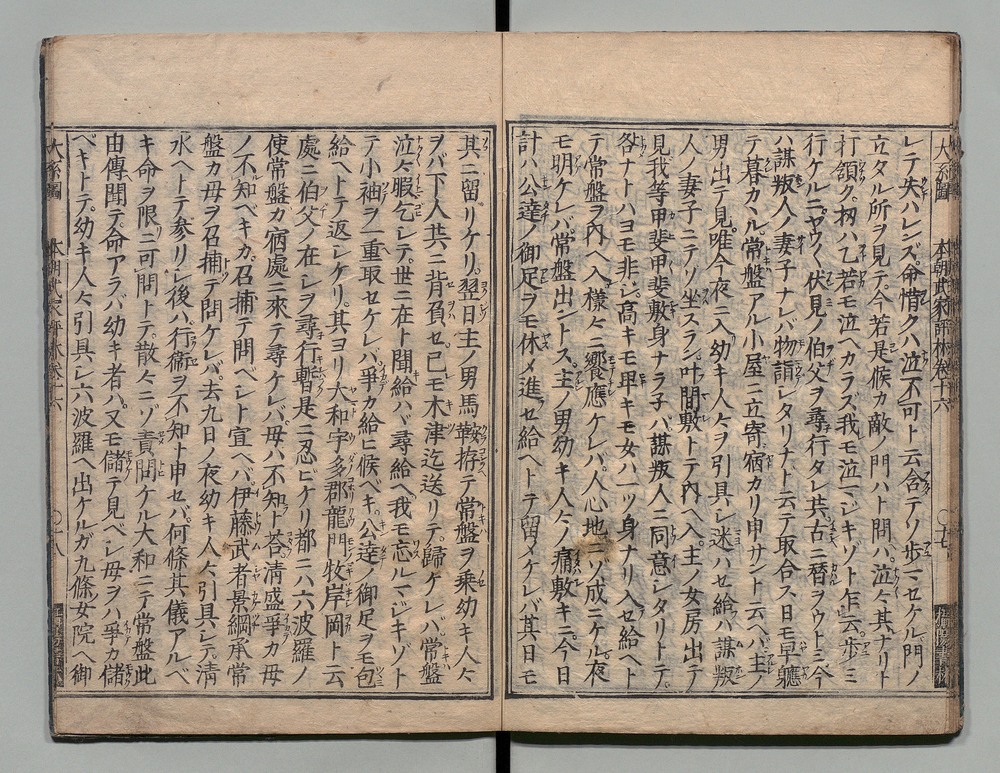 レテ失ハレンズ命惜クハ泣不可ト云含テソ歩マセケル門ノ
立タル所ヲ見テ今若是候カ敵ノ門ハト問バ泣々其ナリト
打頷ク扨ハ乙若モ泣ヘカラズ我モ泣マジキゾト乍云歩ミ
行ケルニヤウ〳〵伏見ノ伯父ヲ尋行タレ共古ニ替ヲウトミ今
ハ謀叛人ノ妻子ナレバ物詣レタリナト云テ取合ス日モ早軈
テ暮カヽル常盤アル小屋ニ立寄宿カリ申サント云ヘバ主ノ
男出テ見唯今夜ニ入幼キ人々ヲ引具シ迷ハセ給バ謀叛
人ノ妻子ニテソ坐スラン叶間敷トテ内ヘ入主ノ女房出テ
見我等甲斐甲斐敷身ナラ子バ謀叛人ニ同意シタリトテ
各ナトハヨモ非シ高キモ卑キモ女ハ一ツ身ナリ入セ給ヘト
テ常盤ヲ内ヘ入様々ニ饗應ケレバ人心地ニソ成ニケル夜
モ明ケレバ常盤出ントス主ノ男幼キ人々ノ痛敷キニ今日
計ハ公達ノ御足ヲモ休メ進セ給ヘトテ留メケレバ其日モ
大系圖 本朝武家評林卷十六 〇十七
其ニ留リケリ翌日主ノ男馬鞍拵テ常盤ヲ乗幼キ人々
ヲバ下人共ニ背負セ己モ木津迄送リテ歸ケレバ常盤
泣々暇乞シテ世ニ在ト聞給ハヾ尋給ヘ我モ忘ルマジキゾト
テ小袖ヲ一重取セケレバ爭カ給ヒ候ベキ公達ノ御足ヲモ包
給ヘトテ返シケリ其ヨリ大和宇多郡龍門牧岸岡ト云
處ニ伯父ノ在シヲ尋行暫是ニ忍ヒケリ都ニハ六波羅ノ
使常盤カ宿處ニ來テ尋ケレバ母ハ不知ト荅清盛爭カ母
ノ不知ベキカ召捕テ問ベシト宣ヘバ伊藤武者景綱承常
盤カ母ヲ召捕テ問ケレバ去九日ノ夜幼キ人々引具シテ清
水ヘトテ參リシ後ハ行衞ヲ不知ト申セバ何條其儀アルベ
キ命ヲ限ニ可問トテ散々ニゾ責問ケル大和ニテ常盤此
由傳聞テ命アラバ幼キ者ハ又モ儲テ見ベシ母ヲハ爭カ儲
ベキトテ幼キ人々引具シ六波羅ヘ出ケルガ九條女院ヘ御
大系圖 本朝武家評林卷十六 〇十八